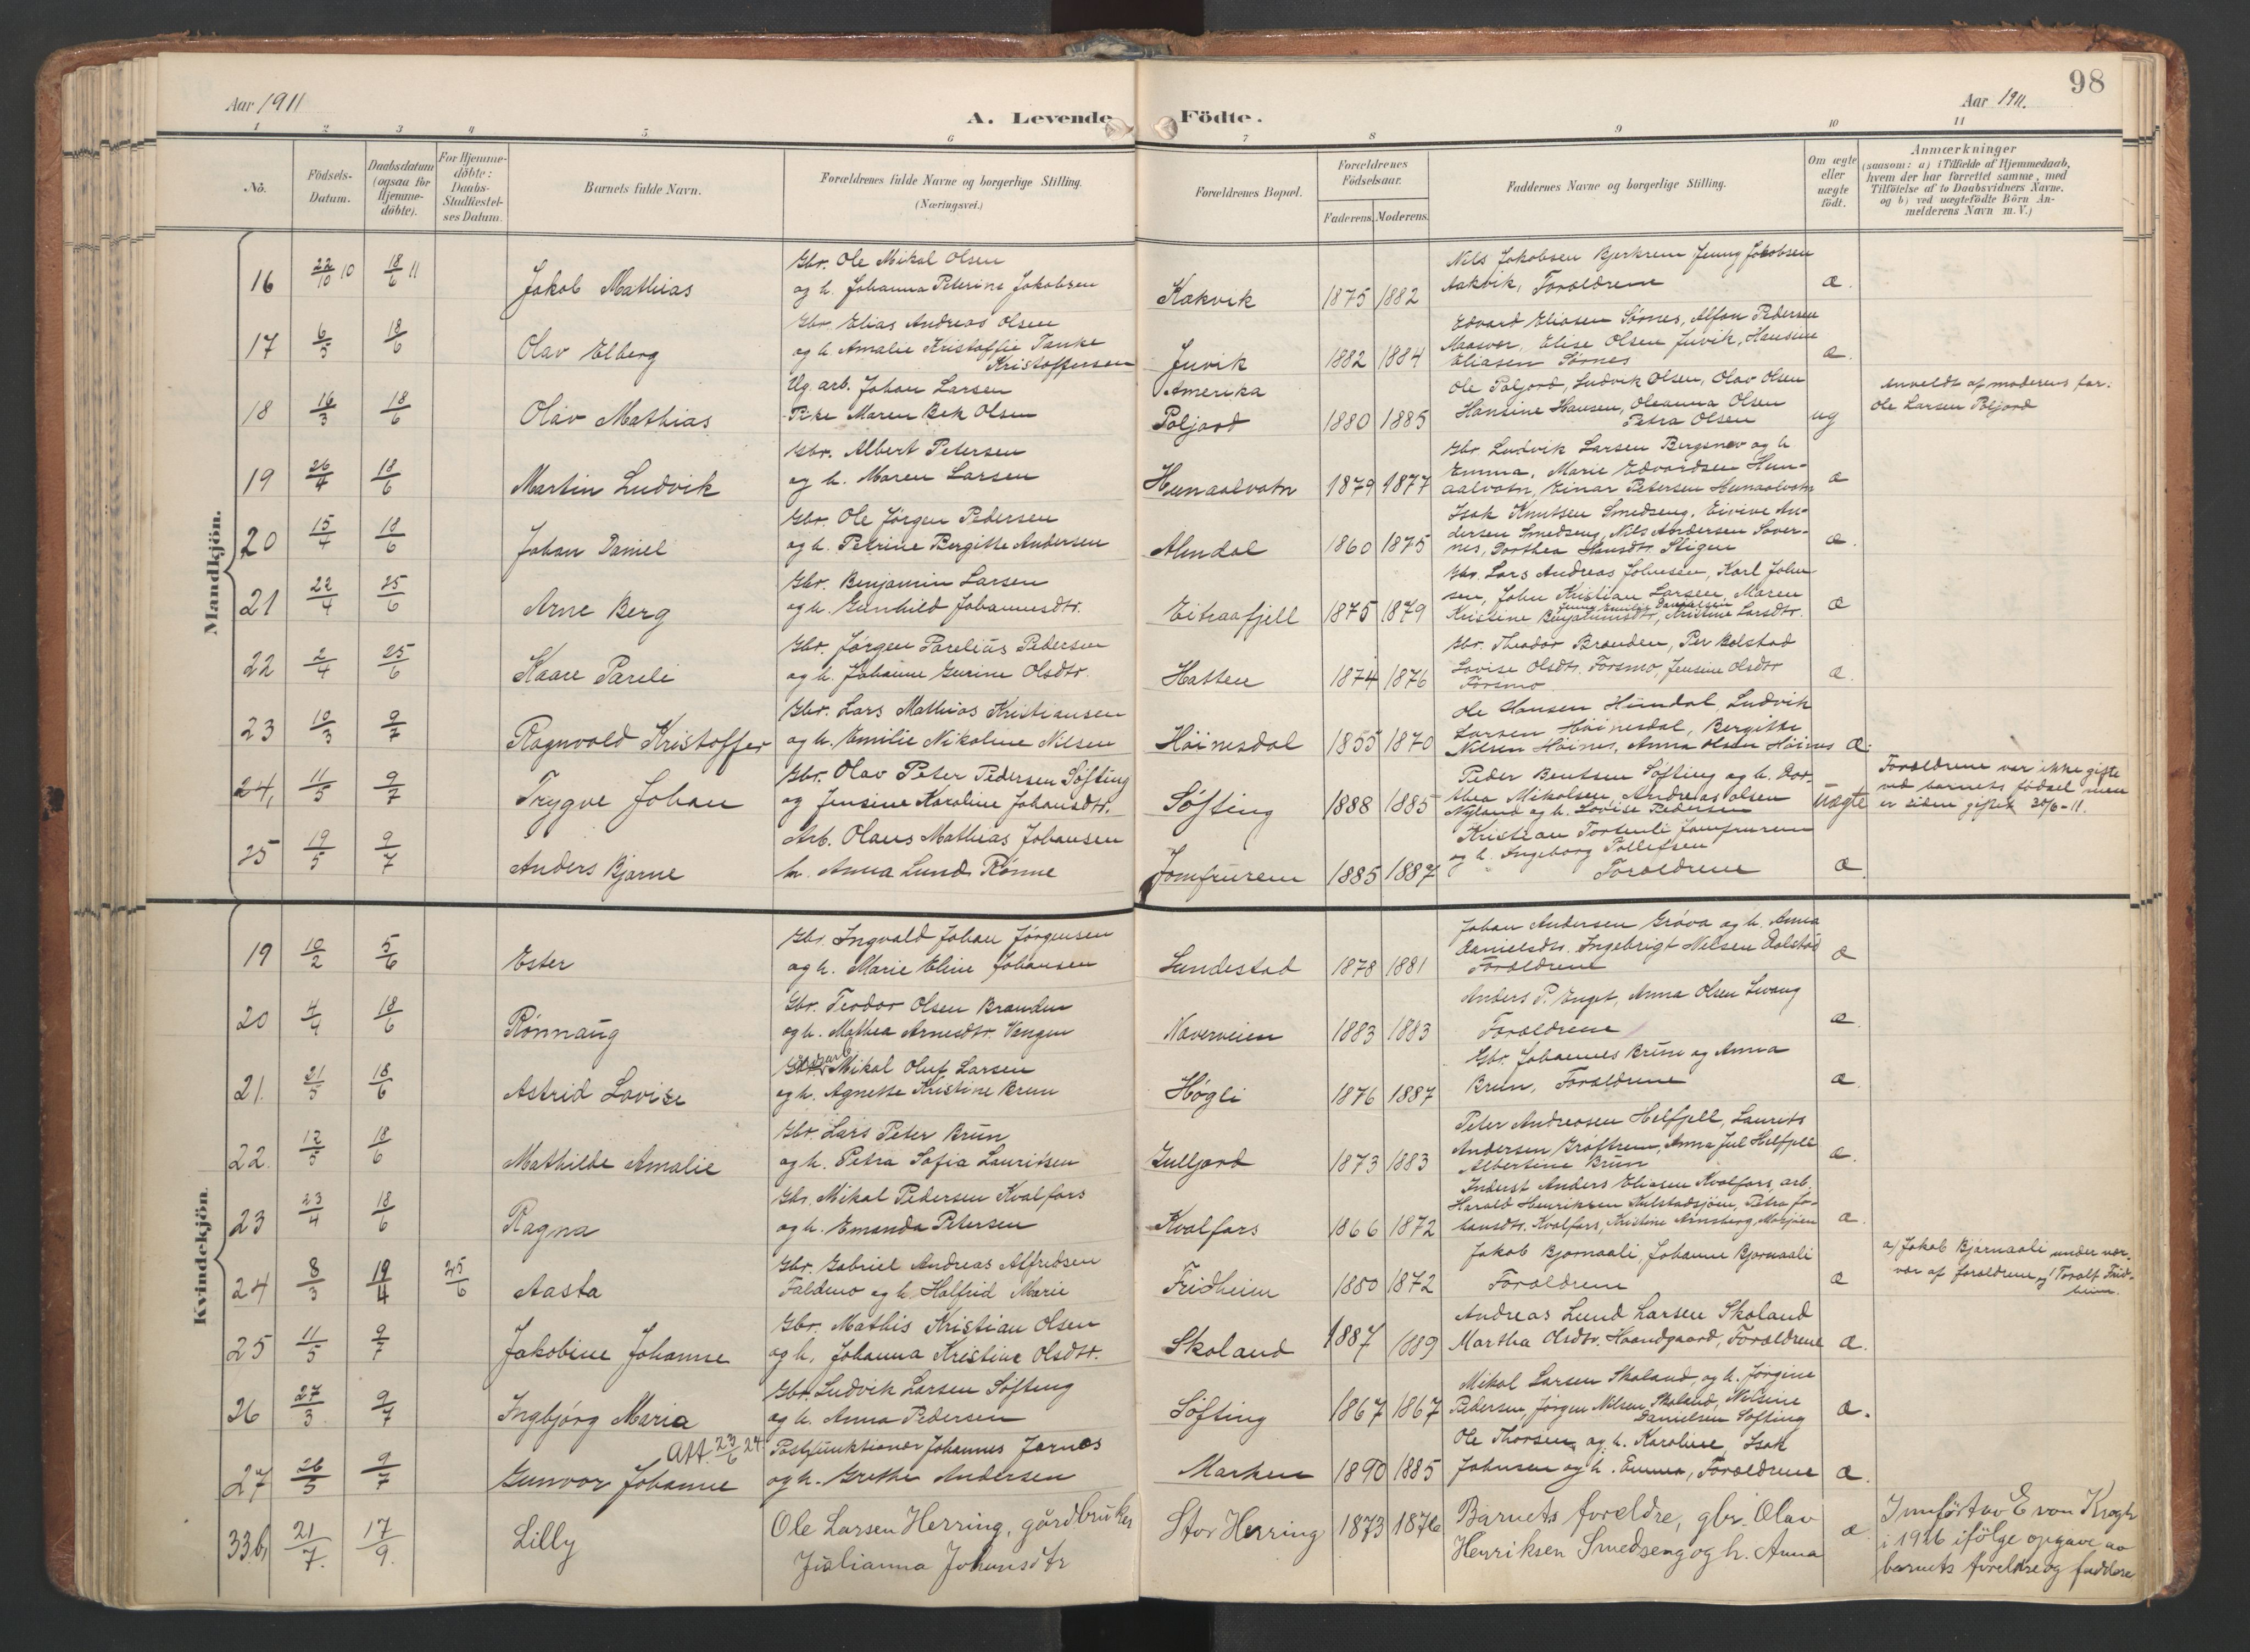 Aar 1911
A. Levende Födte.
Aar 1911.
98
1 2 3 4 5 6 7 8 9 10 11
No.
Födsels-Datum.
Daabsdatum (ogsaa for Hjemme-döbte).
For Hjemme-döbte: Daabs-Stadfæstel-ses Datum.
Barnets fulde Navn.
Forældrenes fulde Navne og borgerlige Stilling.
(Næringsvei.)
Forældrenes Bopæl.
Forældrenes Födselsaar.
Faderens. Moderens.
Faddernes Navne og borgerlige Stilling.
Om ægte eller uægte födt.
Anmærkninger
(saasom: a) i Tilfælde af Hjemmedaab,
hvem der har forrettet samme, med
Tilföielse af to Daabsvidners Navne.
og b) ved uægtefödte Börn An-
melderens Navn m. V.)
Mandkjön.
16 22/10 10 18/6 11 Jakob Mathias
Gbr. Ole Mikal Olsen
og h. Johanna Peterine Jakobsen
Kakvik 1875 1882
Nils Jakobsen Bjerkrem Jenny Jakobsen
Aakvik, Forældrene
æ.
17 6/5 18/6 Olav Elberg
Gbr. Elias Andreas Olsen
og h. Amalie Kristoffie Tanke
Kristoffersen
Juvik 1882 1884
Edvard Eliasen Sørnes, Alfon Pedersen
Maasvær, Elise Olsen Juvik, Hansine
Eliasen Sørnes
æ.
18 16/3 18/6 Olav Mathias
Ug. arb. Johan Larsen
Pike Maren Bek Olsen
Amerika
Poljord 1880 1885
Ole Poljord, Ludvik Olsen, Olav Olsen
Hansine Hansen, Oleanna Olsen
Petra Olsen
ug
Anmeldt af moderens far.
Ole Larsen Poljord
19 26/4 18/6 Martin Ludvik
Gbr. Albert Petersen
og h. Maren Larsen
Hunaalvatn 1879 1877
Gbr. Ludvik Larsen Bergsnev og h
Emma, Marie Edvardsen Hun-
aalvatn, Einar Petersen Hunaalvatn
æ
20 15/4 18/6 Johan Daniel
Gbr. Ole Jørgen Pedersen
og h. Petrine Bergitte Andersen
Almdal 1860 1875
Isak Knutsen Smedseng, Eivine An-
dersen Smedseng, Nils Andersen Sover-
nes, Dorthea Hansdtr. Stigen
æ.
21 22/4 25/6 Arne Berg
Gbr. Benjamin Larsen
og h. Gunhild Johannesdtr.
Eitraafjell 1875 1879
Gbr. Lars Andreas Johnsen, Karl John
sen, John Kristian Larsen, Maren
Jenny Emilie Danielsen
Kristine Benjaminsdtr, Kristine Larsdtr.
æ
22 2/4 25/6 Kaare Pareli
Gbr. Jørgen Parelius Pedersen
og h. Johanne Gurine Olsdtr.
Hatten 1874 1876
Gbr. Theodor Brænden, Per Bolstad
Lovise Olsdtr. Forsmo, Jensine Olsdtr
Forsmo
æ.
23 10/3 9/7 Ragnvald Kristoffer
Gbr. Lars Mathias Kristiansen
og h. Emilie Nikoline Nilsen
Høinesdal 1855 1870
Ole Hansen Hundal, Ludvik
Larsen Høinesdal, Bergitte
Nilsen Høines, Anna Olsen Høines
æ.
24, 11/5 9/7 Trygve Johan
Gbr. Olav Peter Pedersen Søfting
og Jensine Karoline Johansdtr.
Søfting 1888 1885
Peder Bentsen Søfting og h. Dor-
thea Mikalsen, Andreas Olsen
Nyland og h. Lovise Pedersen
Uægte
Forældrene var ikke gifte
ved barnets födsel men
er siden giftet 30/6-11.
25 19/5 9/7 Anders Bjarne
Arb. Olaus Mathias Johansen
h. Anna Lund Rønne
Jomfrurem 1885 1887
Kristian Jomfrurem
og h. Ingeborg Tollefsen
Forældrene
æ.
Kvindekjön.
19 10/2 5/6 Ester
Gbr. Ingvald Johan Jørgensen
og h. Marie Eline Johansen
Lundestad 1878 1881
Johan Andersen Grøva og h. Anna
Danielsdtr. Ingebrigt Nelsen Dalstad
Forældrene
æ
20 4/4 18/6 Rönnaug
Gbr. Teodor Olsen Brænden
og h. Mathea Arnesdtr. Vangen
Naverveien 1883 1883
Anders P. Enget, Anna Olsen Svang
Forældrene
æ.
21. 21/5 18/6 Astrid Lovise
Mikal Oluf Larsen
og h. Agnette Kristine Brun
Høgli 1876 1887
Gbr. Johannes Brun og Anna
Brun, Forældrene
æ.
22. 12/5 18/6 Mathilde Amalie
Gbr. Lars Peter Brun
og h. Petra Sofia Lauritsen
Zulljord 1873 1883
Peter Andreasen Helfjell, Laurits
Andersen Grøftrem, Anna Jul Helfjell
Albertine Brun
æ.
23 23/4 18/6 Ragna
Gbr. Mikal Pedersen Kvalfors
og h. Emanda Petersen
Kvalfors 1866 1872
Inderst Anders Eliasen Kvalfors, arb.
Harald Henriksen Kulstadsjøen, Petra Jo-
hansdtr. Kvalfors, Kristine Arnsberg, Mosjøen
æ.
24 8/3 19/4 25/6 Aasta
Gbr. Gabriel Andreas Alfredsen
Faldmo og h. Halfrid Marie
Fridheim 1850 1872
Jakob Bjornaali, Johanne Bjornaali
Forældrene
æ
a) Jakob Bjørnaali under nær-
vær af forældrene og Toralf Frid-
heim.
25 11/5 9/7 Jakobine Johanne
Gbr. Mathis Kristian Olsen
og h. Johanna Kristine Olsdtr.
Skoland 1887 1889
Andreas Lund Larsen Skoland
Martha Olsdtr. Haandgaard, Forældrene
æ.
26 27/3 9/7 Ingbjørg Maria
Gbr. Ludvik Larsen Søfting
og h. Anna Pedersen
Søfting 1867 1867
Mikal Larsen Skoland og h. Jørgine
Pedersen, Jørgen Nilsen Skoland, Nilsine
Danielsen Søfting
æ.
27 26/5 9/7 att. 23/6 24 Gunvor Johanne
Postfunktionær Johannes Jarnes
og h. Grethe Andersen
Marken 1890 1885
Ole Thorsen og h. Karoline, Isak
Johnsen og h. Emma, Forældrene
æ.
33b, 21/7. 17/9. Lilly
Ole Larsen Herring, gårdbruker
Julianna Johansdtr
Stor Herring 1873 1876
Barnets foreldre, gbr. Olav
Henriksen Smedseng og h. Anna
æ
Innført av E von Krogh
i 1926 ifölge opgave av
barnets foreldre og faddere